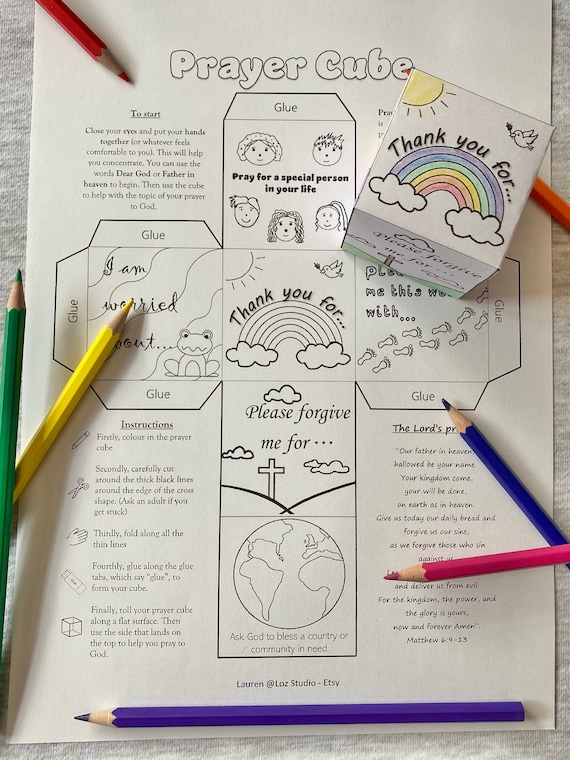 Prayer Cube
To start
Close your eyes and put your hands
together (or whatever feels
comfortable to you). This will help
you concentrate. You can use the
words Dear God or Father in
heaven to begin. Then use the cube
to help with the topic of your prayer
to God.
Glue
Pray for a special person
in your life
Thank you for...
Please forgive
me for...
Glue
Glue
I am
worried
Thank you for...
me this
with...
Glue
Glue
Glue
Please forgive
me for ...
Instructions
Firstly, colour in the prayer
cube
Secondly, carefully cut
around the thick black lines
around the edge of the cross
shape. (Ask an adult if you
get stuck)
Thirdly, fold along all the
thin lines
Fourthly, glue along the glue
tabs, which say "glue", to
form your cube.
Finally, roll your prayer cube
along a flat surface. Then
use the side that lands on
the top to help you pray to
God.
Ask God to bless a country or
community in need
The Lord's
"Our father in heaven,
hallowed be your name.
Your kingdom come,
your will be done,
on earth as in heaven.
Give us today our daily bread and
forgive us our sins,
as we forgive those who sin
against us.
and deliver us from evil.
For the kingdom, the power, and
the glory is yours,
now and forever Amen".
Matthew 6:9-13
Lauren @Loz Studio - Etsy